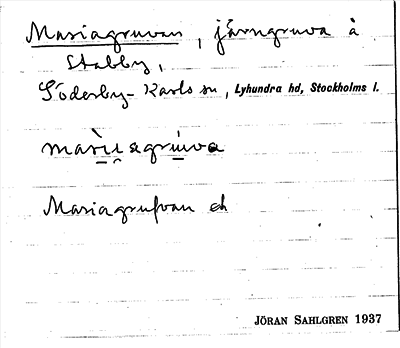 Mariagruvan, järngruva å
Stabby,
Söderby-Karls sn, Lyhundra hd, Stockholms l.
Mariagrufvan ek
JÖRAN SAHLGREN 1937